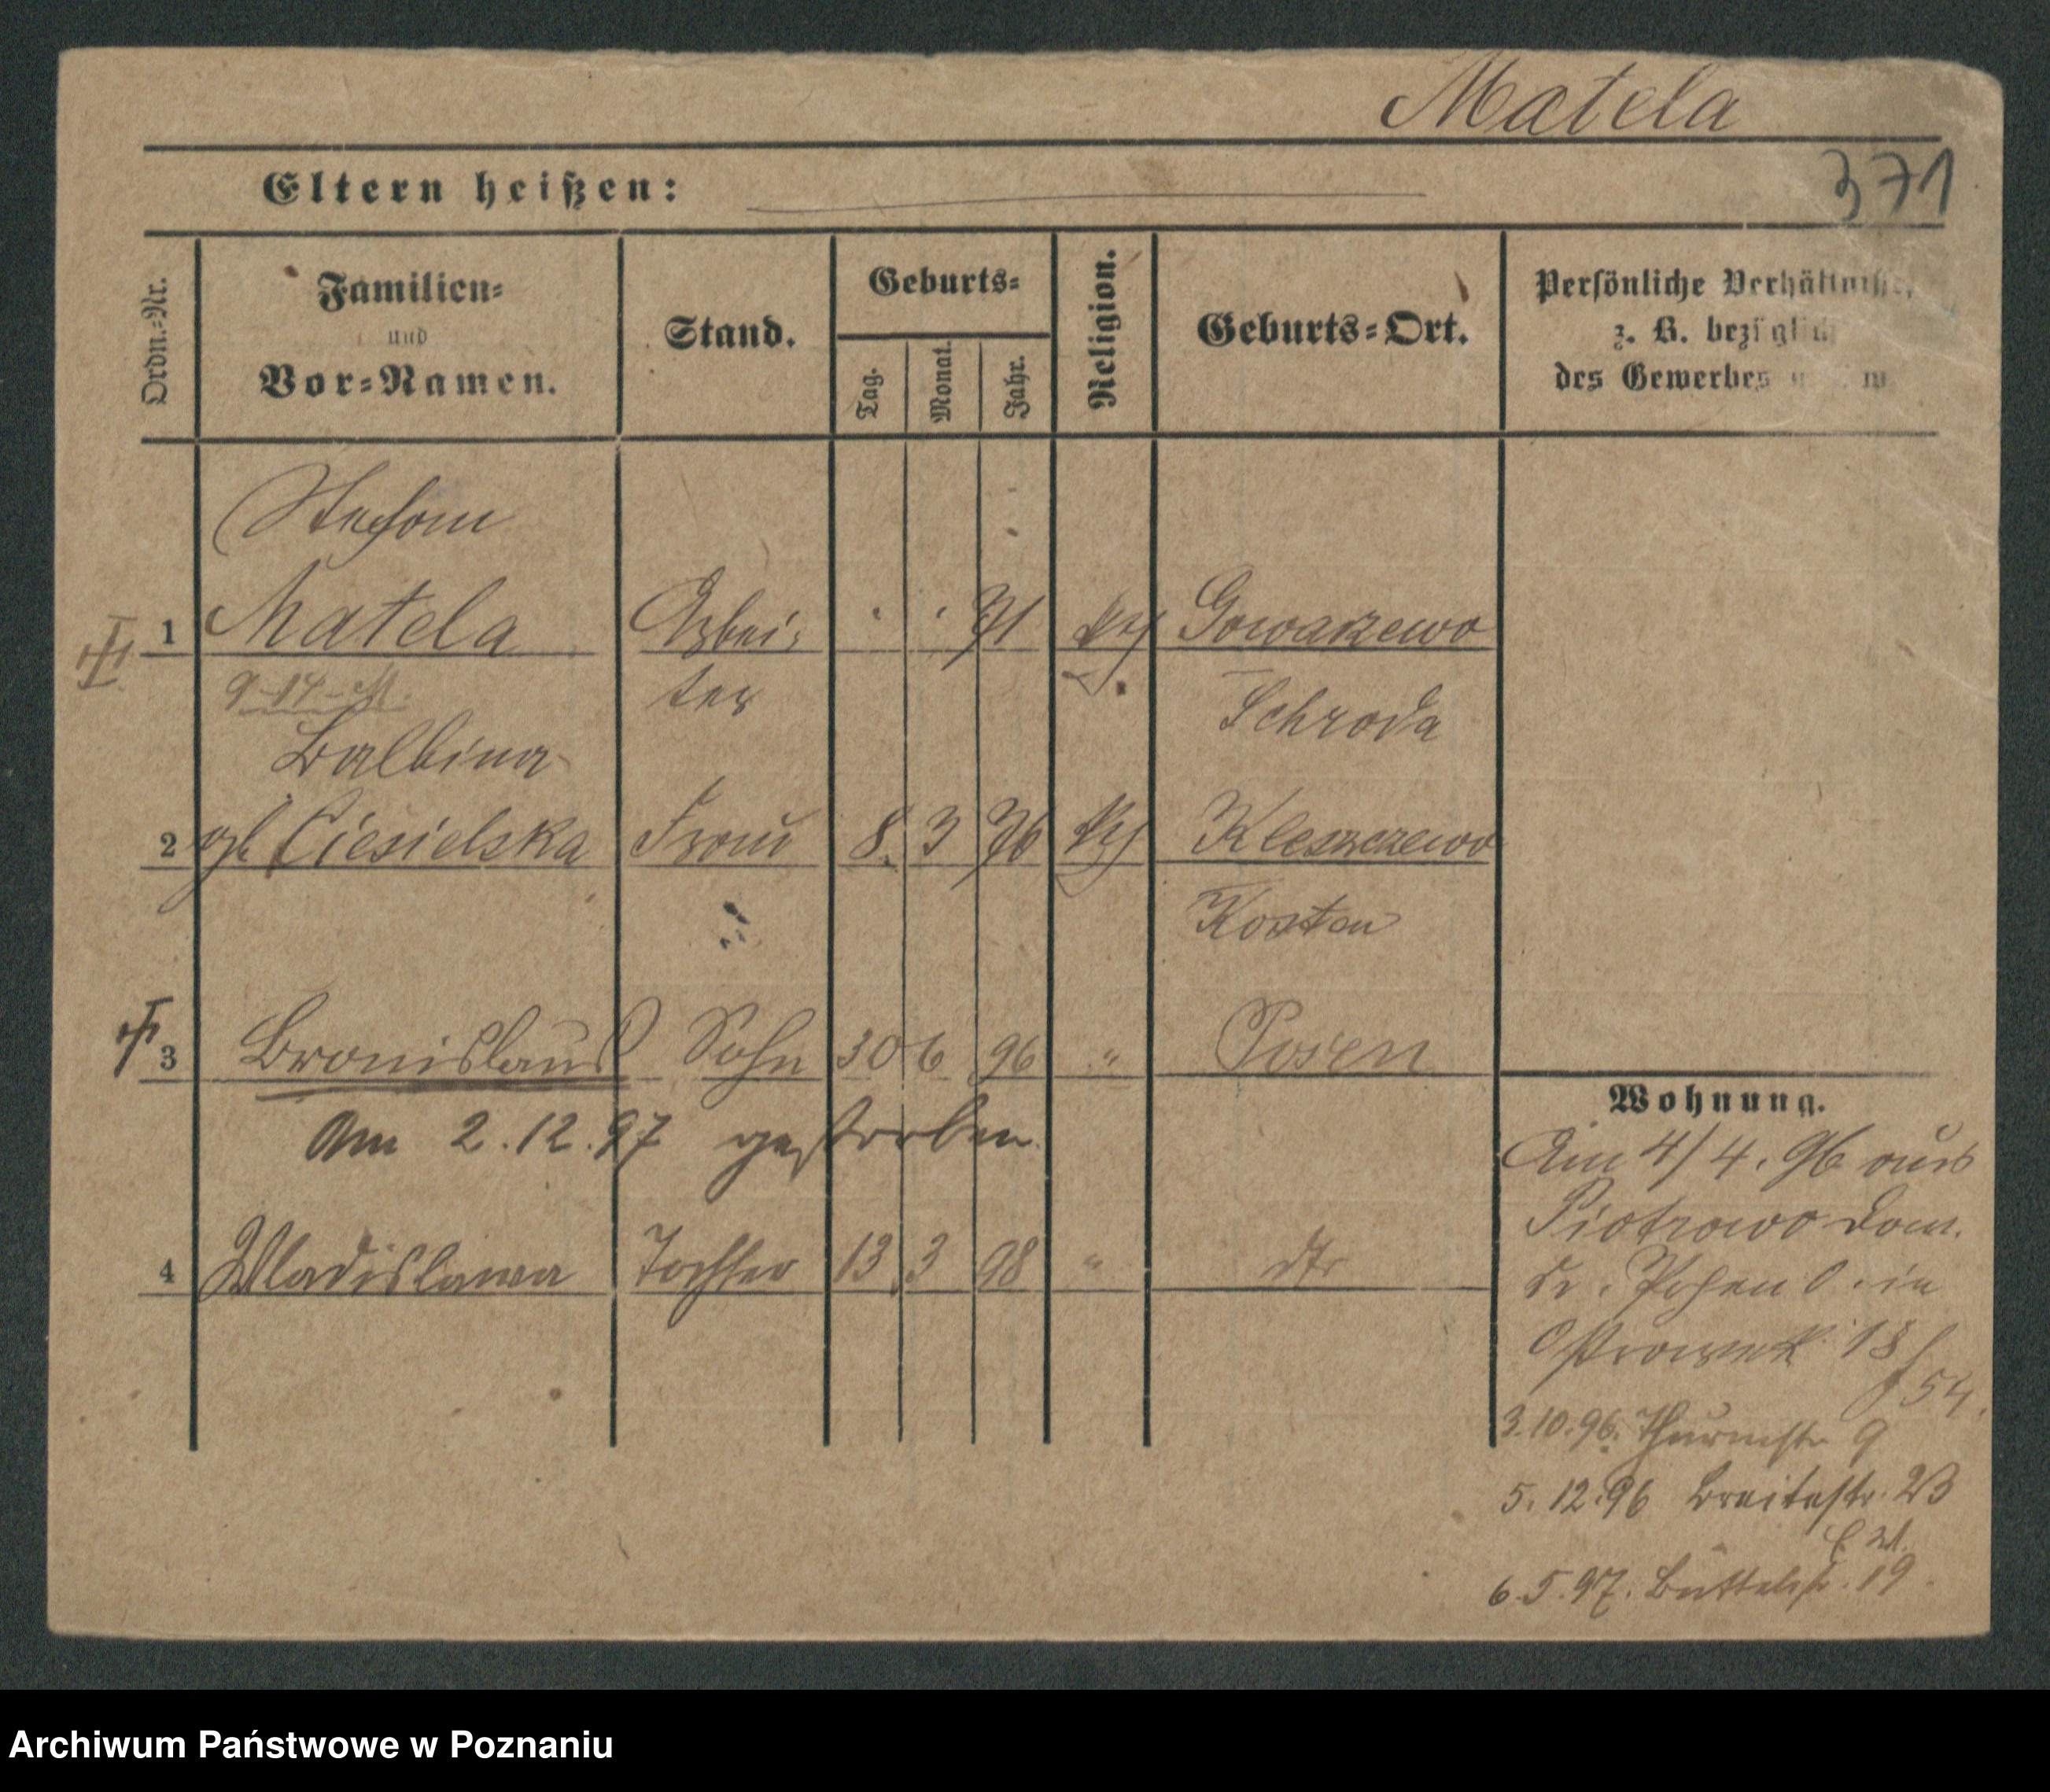 Matela
371
Eltern heißen:
Ordn.-Nr.
Familien-
und
Vor-Namen.
Stand.
Geburts-
Tag.
Monat.
Jahr.
Religion.
Geburts-Ort.
Persönliche Verhältnisse,
z. B. bezüglich
des Gewerbes
Stefan
1 Matela Arbei- 71 Gowarzewo
9-14-M. ter Schroda
Balbina
2 gb. Ciesielska Frau 8. 3 76 Kleszczewo
Kosten
3 Bronislaus Sohn 30 6 96 " Posen
Am 2.12.97 gestorben.
4 Wladislawa Tochter 13 3 98 " dto
Wohnung.
Am 4/4. 96 aus
Piotrowo Dom.
Kr. Posen O. in
Ostrowek 18
54.
3.10.96. Thurmstr 9
5.12.96 Breitestr. 23
6.5.97. Büttelstr. 19
Archiwum Państwowe w Poznaniu